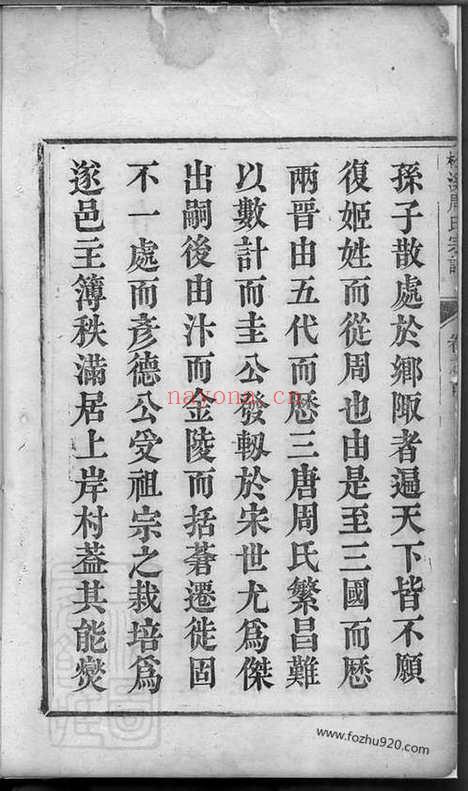 孫子散處於鄉陬者遍天下皆不願
復姬姓而從周也由是至三國而歷
兩晋由五代而歷三唐周氏繁昌難
以數計而圭公發軔於宋世尤爲傑
出嗣後由汴而金陵而括蒼遷徙固
不一處而彥德公受祖宗之栽培爲
遂邑主簿秩滿居上岸村葢其能燮
周氏宗譜
nayona.cn
www.fozhu920.com